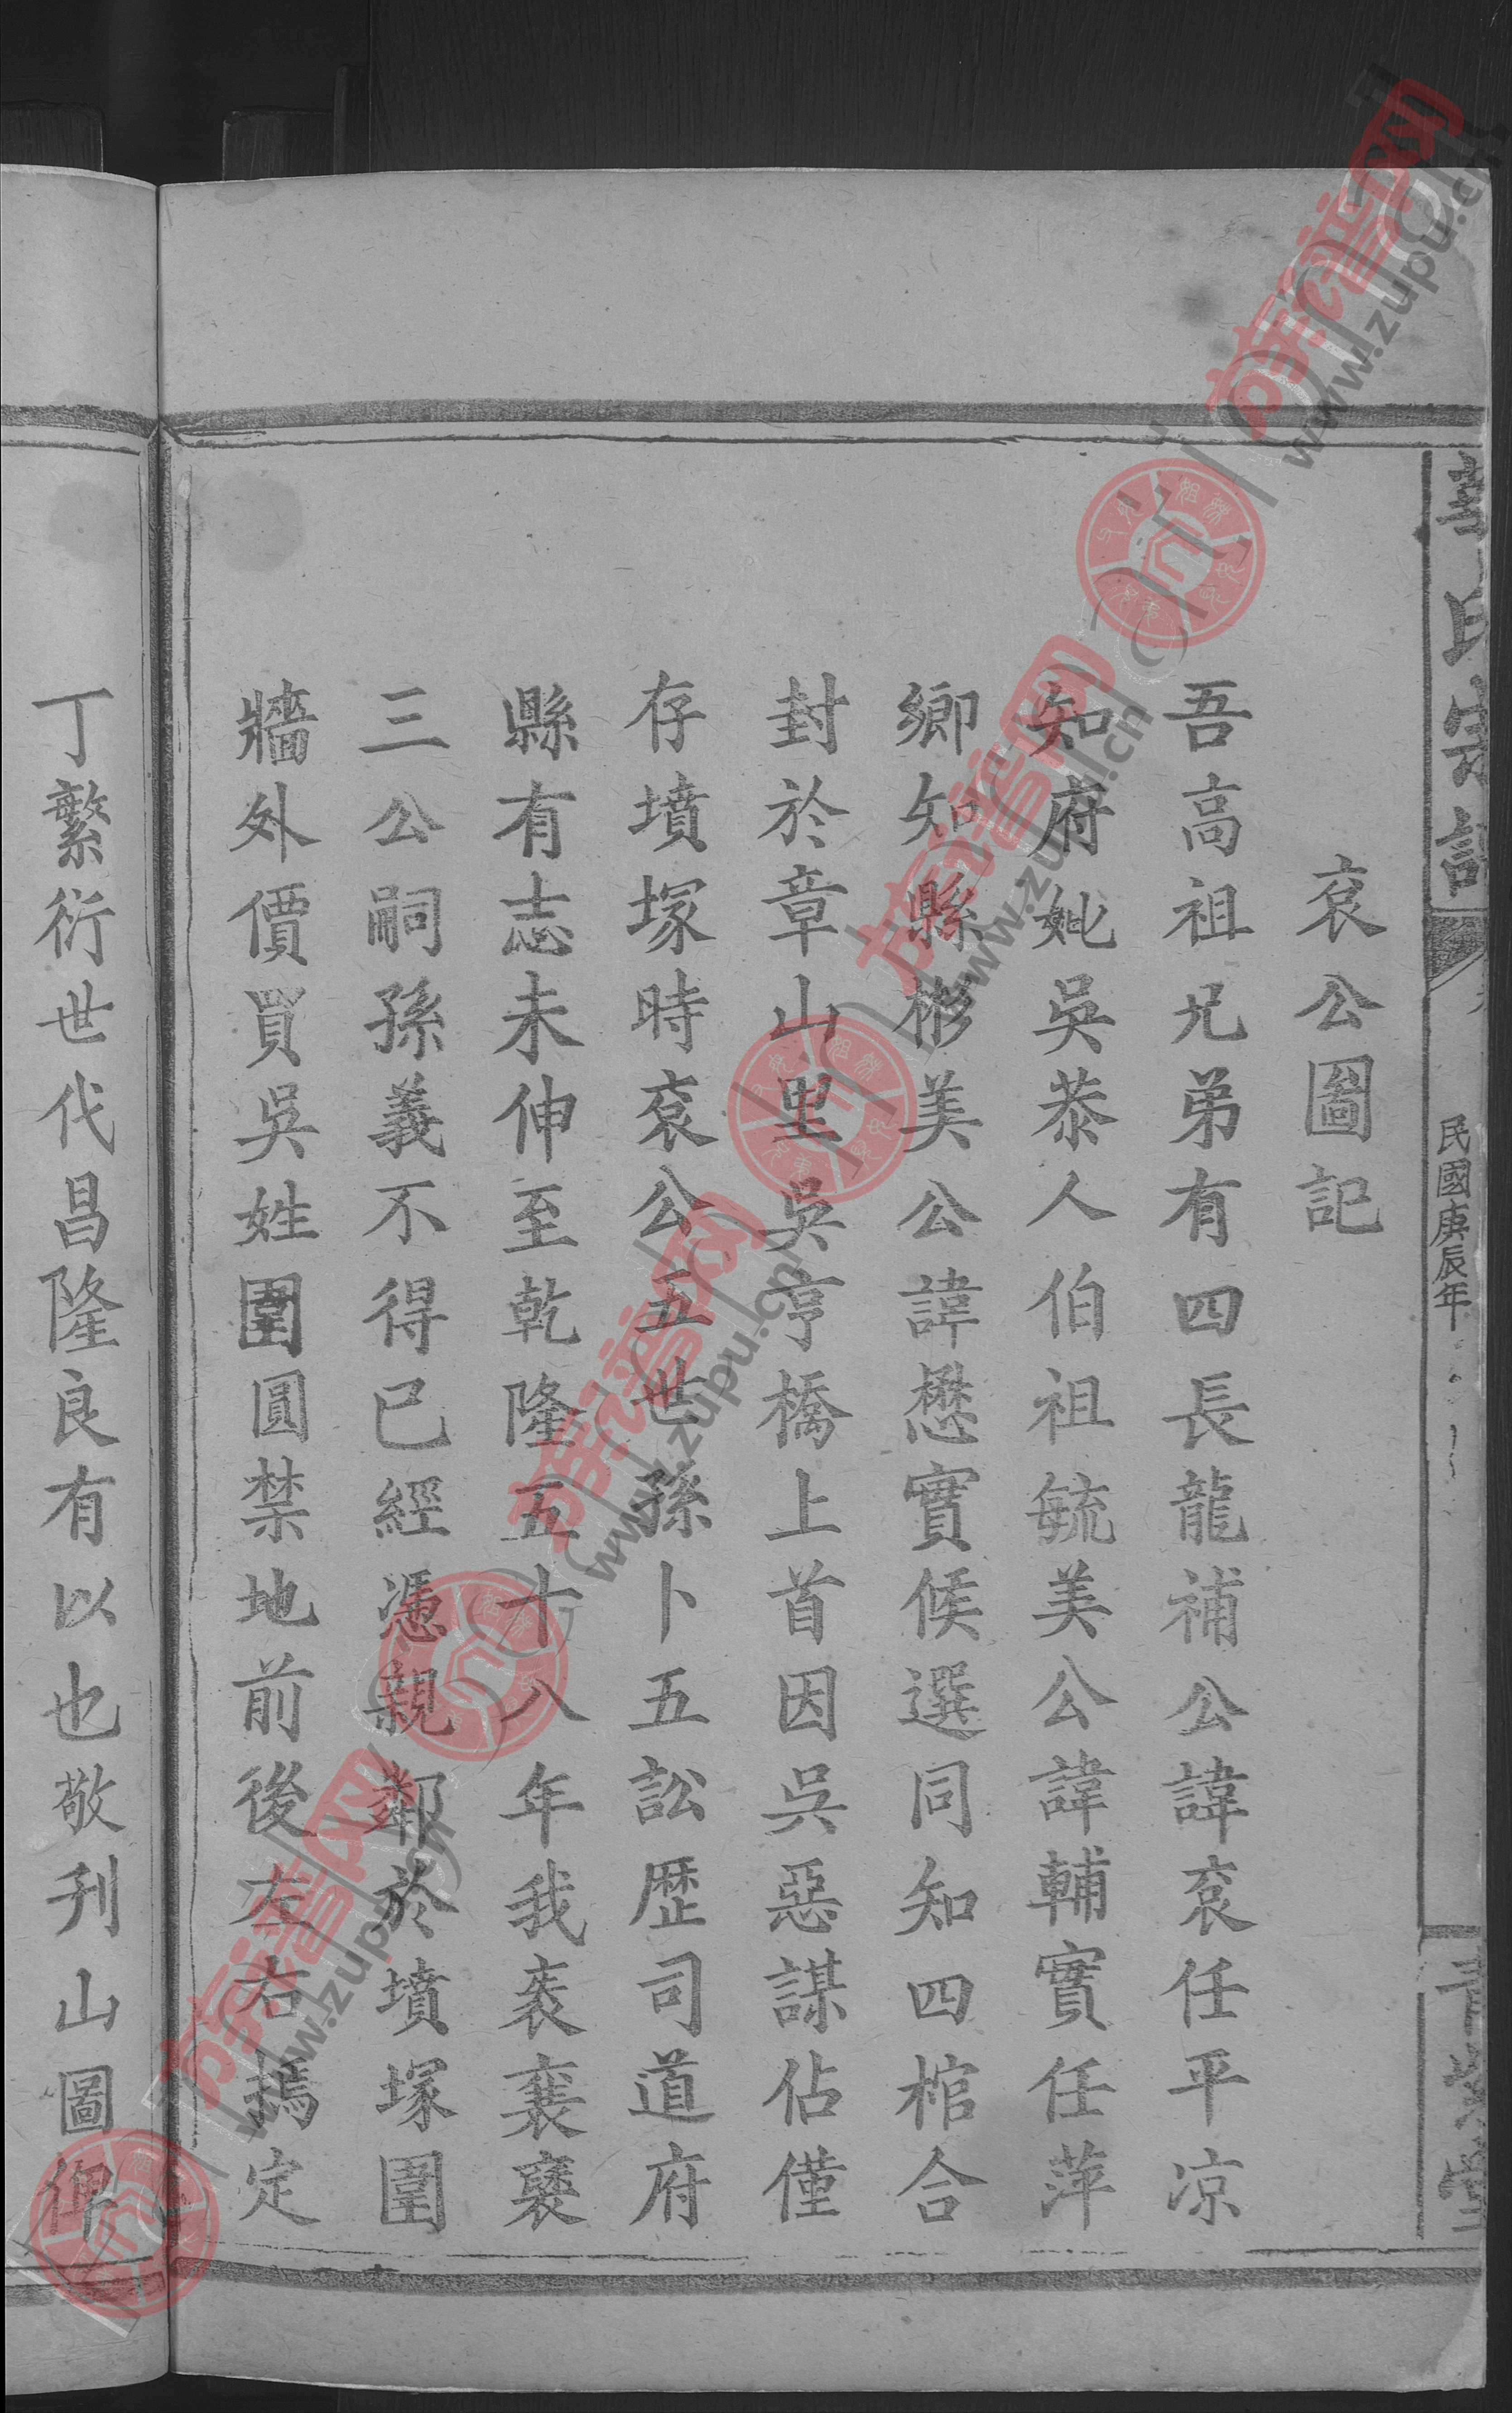 氏宗譜
民國庚辰年
袞公圖記
吾高祖兄弟有四長龍補公諱袞任平凉
知府妣吳恭人伯祖毓美公諱輔實任萍
鄉知縣彬美公諱懋實候選同知四棺合
封於章山里吳亨橋上首因吳惡謀佔僅
存墳塚時袞公五世孫卜五訟歷司道府
縣有志未伸至乾隆五十八年我袞襄褒
三公嗣孫義不得已經憑親鄰於墳塚圍
牆外價買吳姓圍圓禁地前後左右擣定
丁繁衍世代昌隆良有以也敬刋山圖俾
族谱网
www.zupu.cn